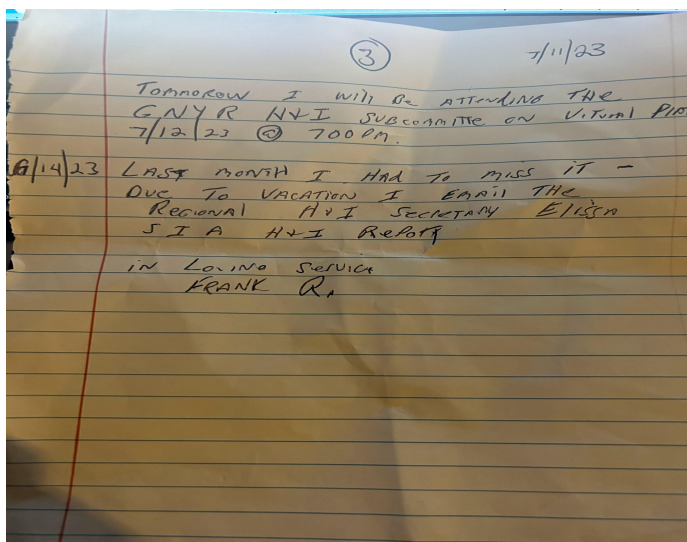 3 7/11/23
TOMMOROW I will Be ATTENDING THE
GNYR H+I SUBCOMMITTE ON VITURAL
7/12/23 @ 700 PM.
6/14/23 LAST MONTH I HAD TO MISS IT -
DUE TO VACATION I EMAIL THE
REGIONAL H+I SECRETARY Elissa
SIA H+I REPORT
IN LOVING SERVICE
FRANK R.